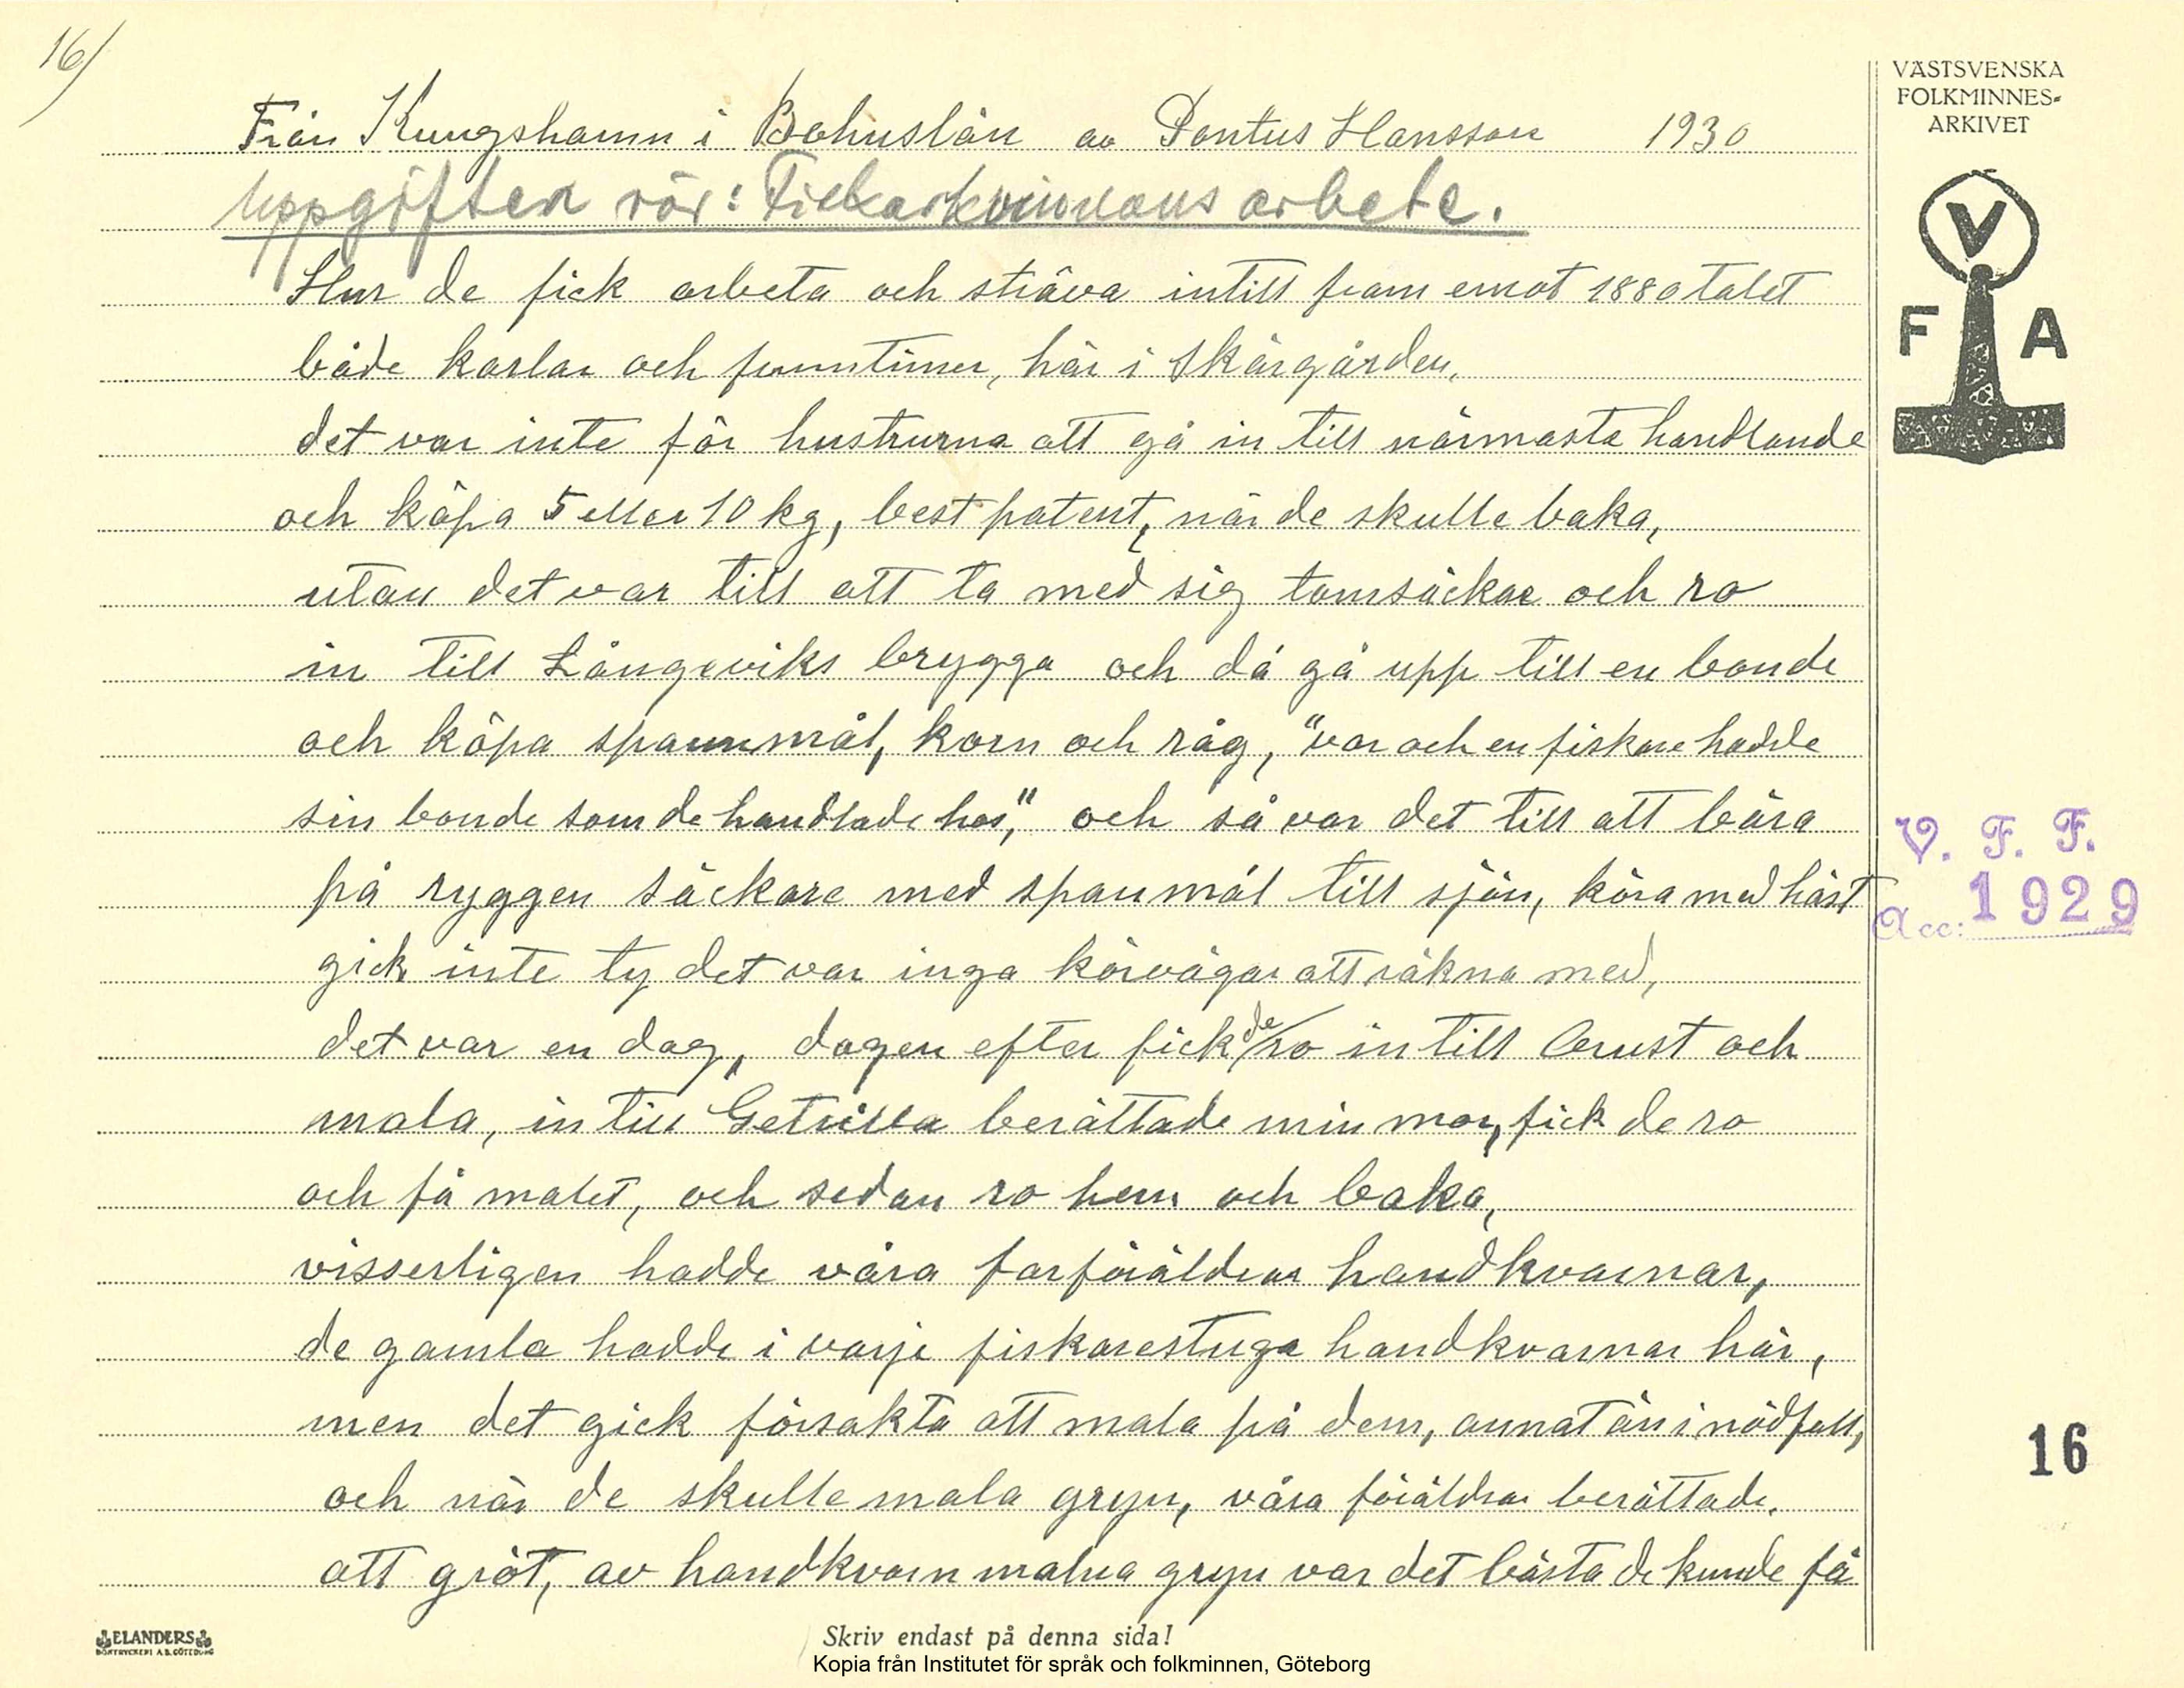 16/
VÄSTSVENSKA
FOLKMINNES-
ARKIVET
Från Kungshamn i Bohuslän av Pontus Hansson 1930
Uppgiften rör: Fiskarkvinnans arbete.
V
F A
Hur de fick arbeta och sträva intill fram emot 1880talet
både karlar och fruntimer, här i Skärgården,
det var inte för hustrurna att gå in till närmasta handlande
och köpa 5 eller 10 kg, best patent, när de skulle baka,
utan det var till att ta med sig tomsäckar och ro
in till Långeviks brygga och då gå upp till en bonde
och köpa spannmål, korn och råg, "var och en fiskare hadde
sin bonde som de handlade hos", och så var det till att bära
på ryggen säckare med spanmål till sjön, köra med häst
gick inte ty det var inga körvägar att räkna med,
det var en dag, dagen efter fick de ro in till Orust och
mala, in till berättade min mor, fick de ro
och få malet, och sedan ro hem och baka,
visserligen hadde våra farföräldrar handkvarnar,
de gamla hadde i varje fiskarestuga handkvarnar här,
men det gick försakta att mala på dem, annat än i nödfall,
och när de skulle mala gryn, våra föräldrar berättade.
att gröt, av handkvarn malna gryn var det bästa de kunde få
V. F. F.
Acc: 1929
16
ELANDERS
BOKTRYCKERI A.B. GÖTEBORG
Skriv endast på denna sida!
Kopia från Institutet för språk och folkminnen, Göteborg